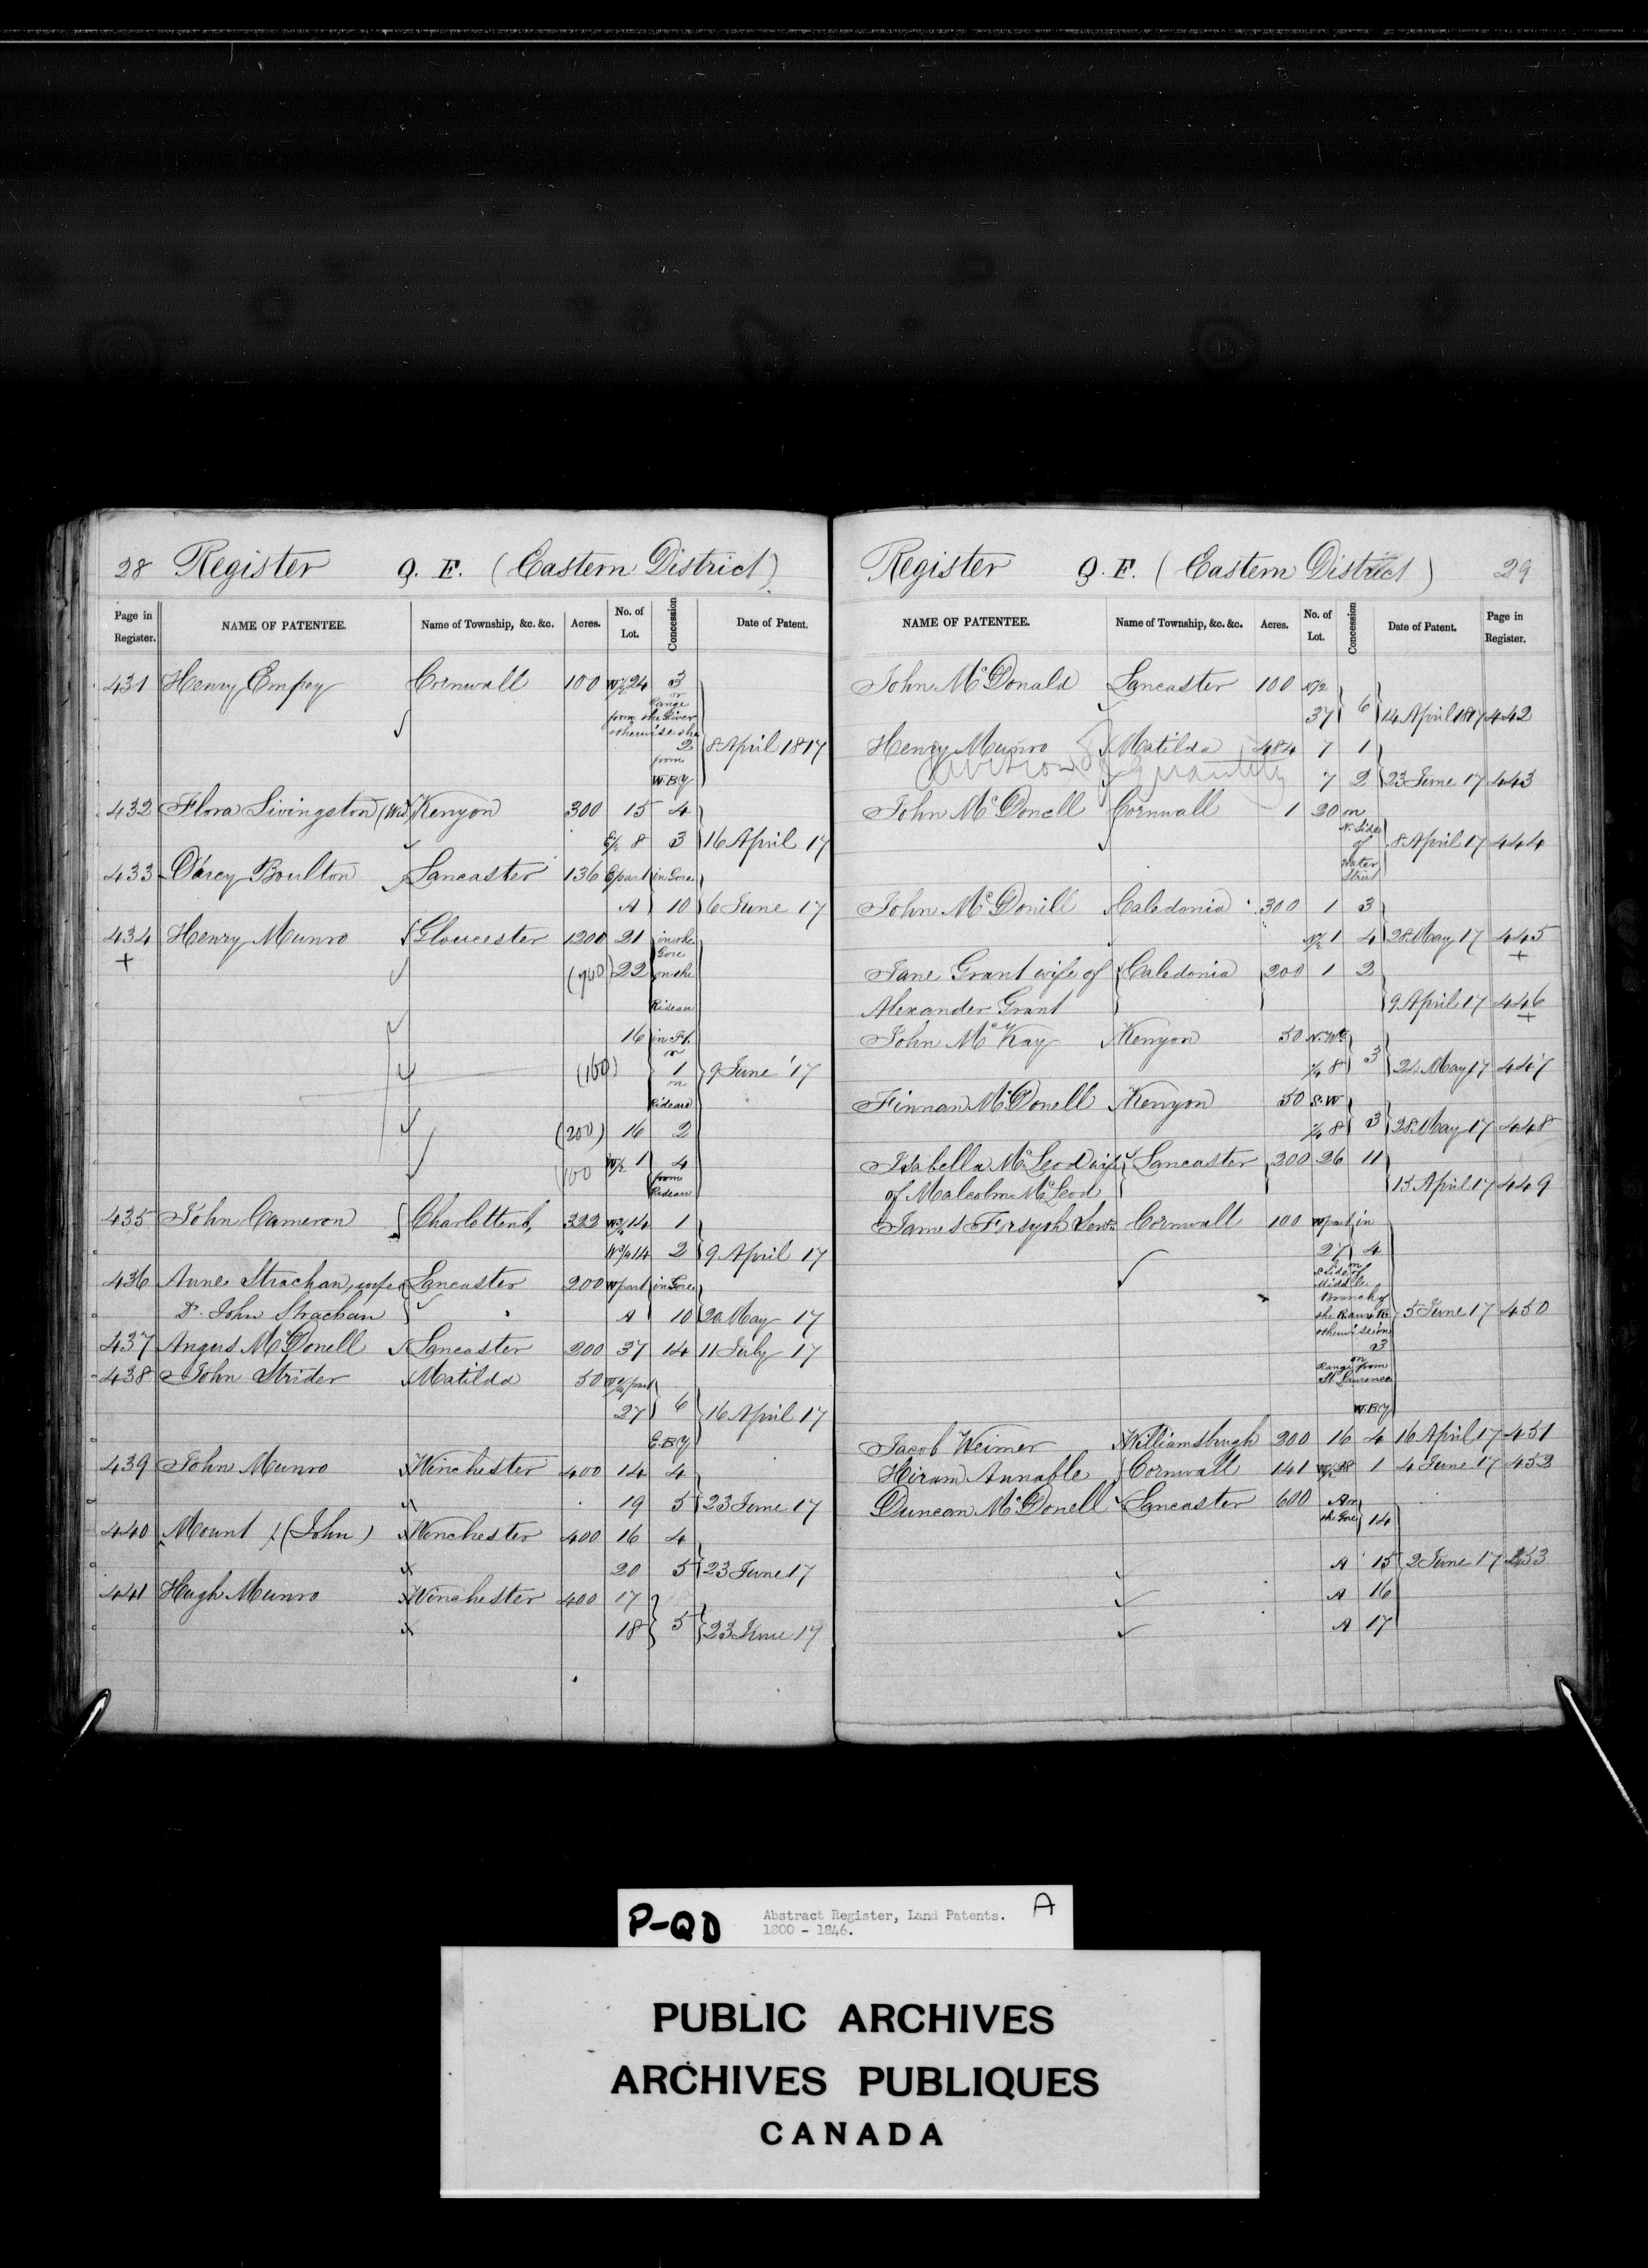 28 Register Q. F. (Eastern District)
Page in Register. NAME OF PATENTEE. Name of Township, &c. &c. Acres. No. of Lot. Concession Date of Patent.
431 Henry Empey Cornwall 100 W½ 24 3
or
Range
from the River
otherwise the
2 8 April 1817
from
W.B'y
432 Flora Livingston (Wid) Kenyon 300 15 4
E½ 8 3 16 April 17
433 D'arcy Boulton Lancaster 136 E part in Gore
A 10 6 June 17
434 Henry Munro Gloucester 1200 21 in the
+ Gore
(740) 22 on the
Rideau
16 in Ft.
or
(160) 1 9 June 17
on
Rideau
(200) 16 2
100 W½ 1 4
from
Rideau
435 John Cameron Charlottenb, 322 W¾ 14 1
W¾ 14 2 9 April 17
436 Anne Strachan, wife of Lancaster 200 W part in Gore
Dr. John Strachan A 10 20 May 17
437 Angus McDonell Lancaster 200 37 14 11 July 17
438 John Strider Matilda 50 part
27 6 16 April 17
E.B'y
439 John Munro Winchester 400 14 4
19 5 23 June 17
440 Mount (John) Winchester 400 16 4
20 5 23 June 17
441 Hugh Munro Winchester 400 17
18 5 23 June 17
Register Q. F. (Eastern District) 29
NAME OF PATENTEE. Name of Township, &c. &c. Acres. No. of Lot. Concession Date of Patent. Page in Register.
John McDonald Lancaster 100 N½
37 6 14 April 1817 442
Henry Munro Matilda 484 7 1
quantity 7 2 23 June 17 443
John McDonell Cornwall 1 20 on
N. Side
of 8 April 17 444
Water
Street
John McDonell Caledonia 300 1 3
N½ 1 4 28 May 17 445
+
Jane Grant wife of Caledonia 200 1 2
Alexander Grant 9 April 17 446
+
John McKay Kenyon 50 N.W.
¼ 8 3 24 May 17 447
Finnan McDonell Kenyon 50 S.W
¼ 8 3 28 May 17 448
Isabella McLeod wife Lancaster 200 26 11
of Malcolm McLeod 15 April 17 449
James Forsyth Cornwall 100 W part in
27 4
on
S Side of
Middle
Branch of
the 5 June 17 450
otherwise in
3
on
Range from
St. Lawrence
W.B'y
Jacob Weimer Williamsburgh 200 16 4 16 April 17 451
Hiram Annable Cornwall 141 W½ 28 1 4 June 17 452
Duncan McDonell Lancaster 600 A in
the Gore 14
A 15 2 June 17 453
A 16
A 17
P-QD Abstract Register, Land Patents. A
1800 - 1846.
PUBLIC ARCHIVES
ARCHIVES PUBLIQUES
CANADA